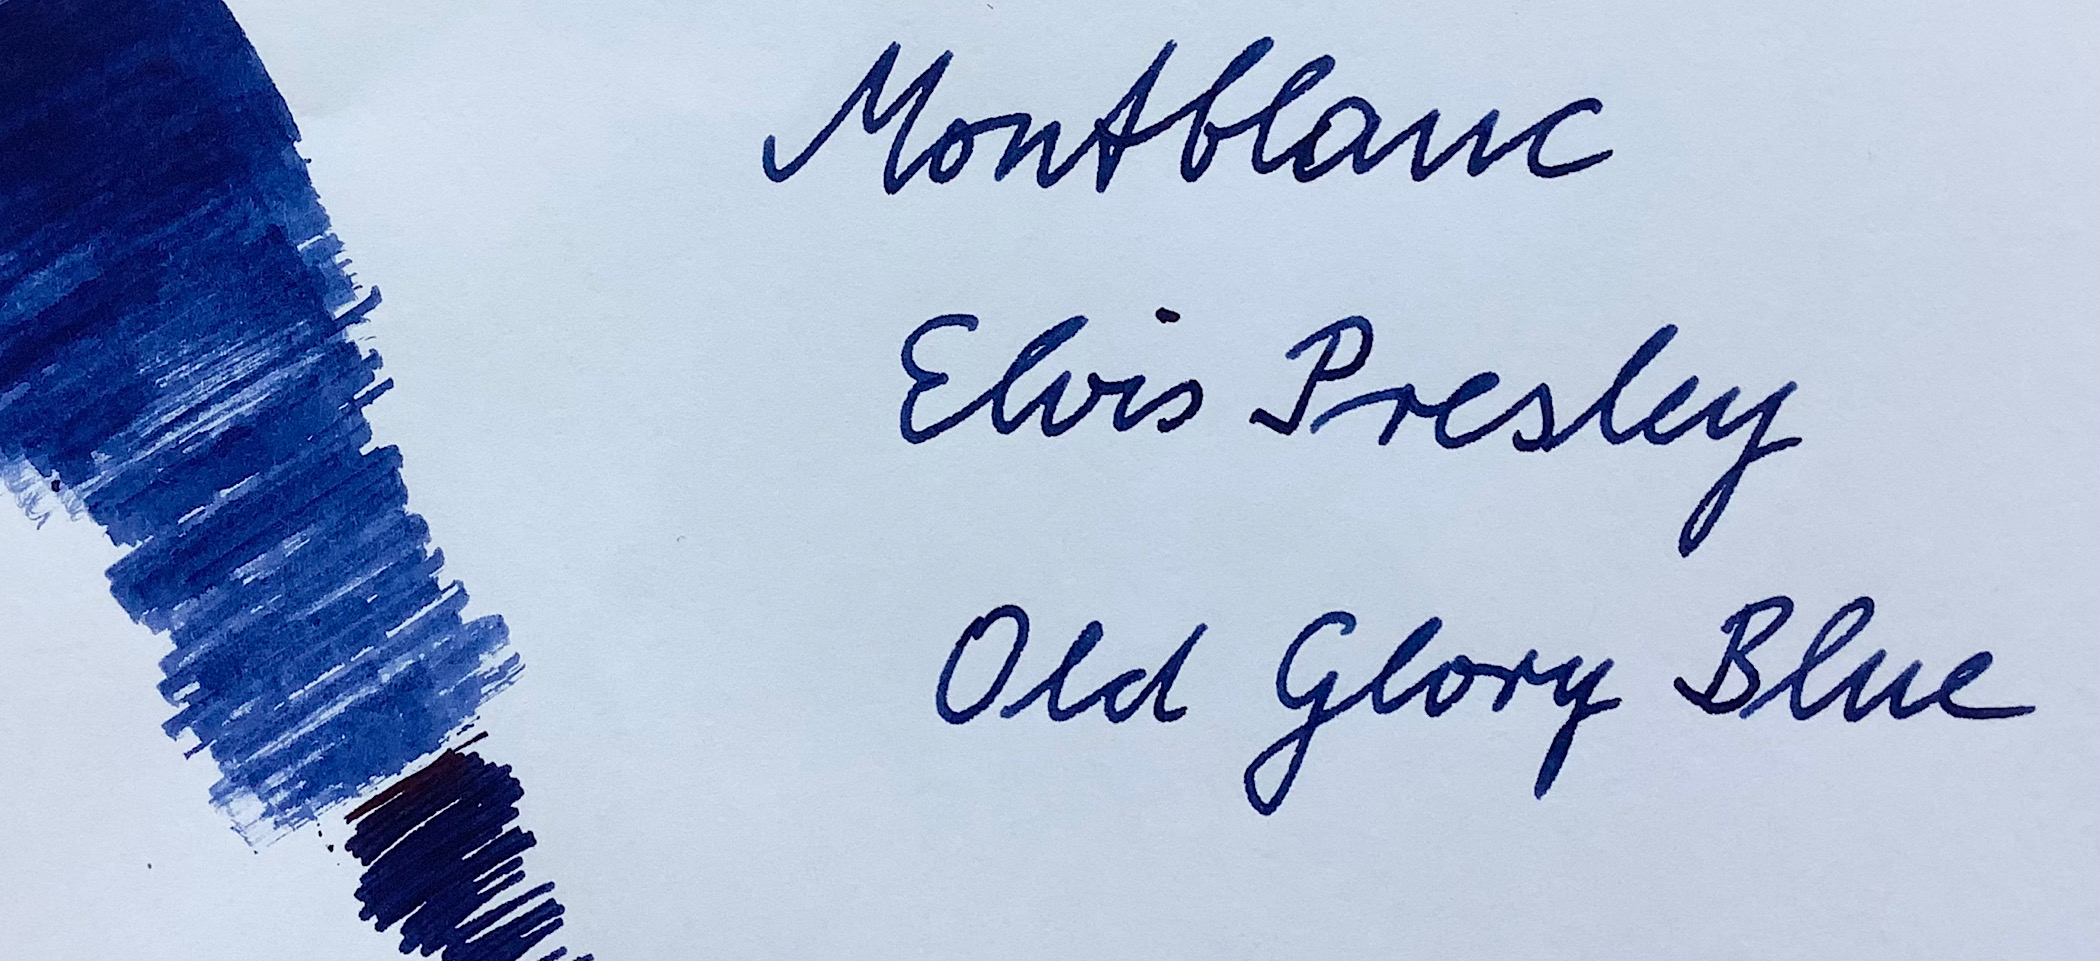 Montblanc
Elvis Presley
Old Glory Blue